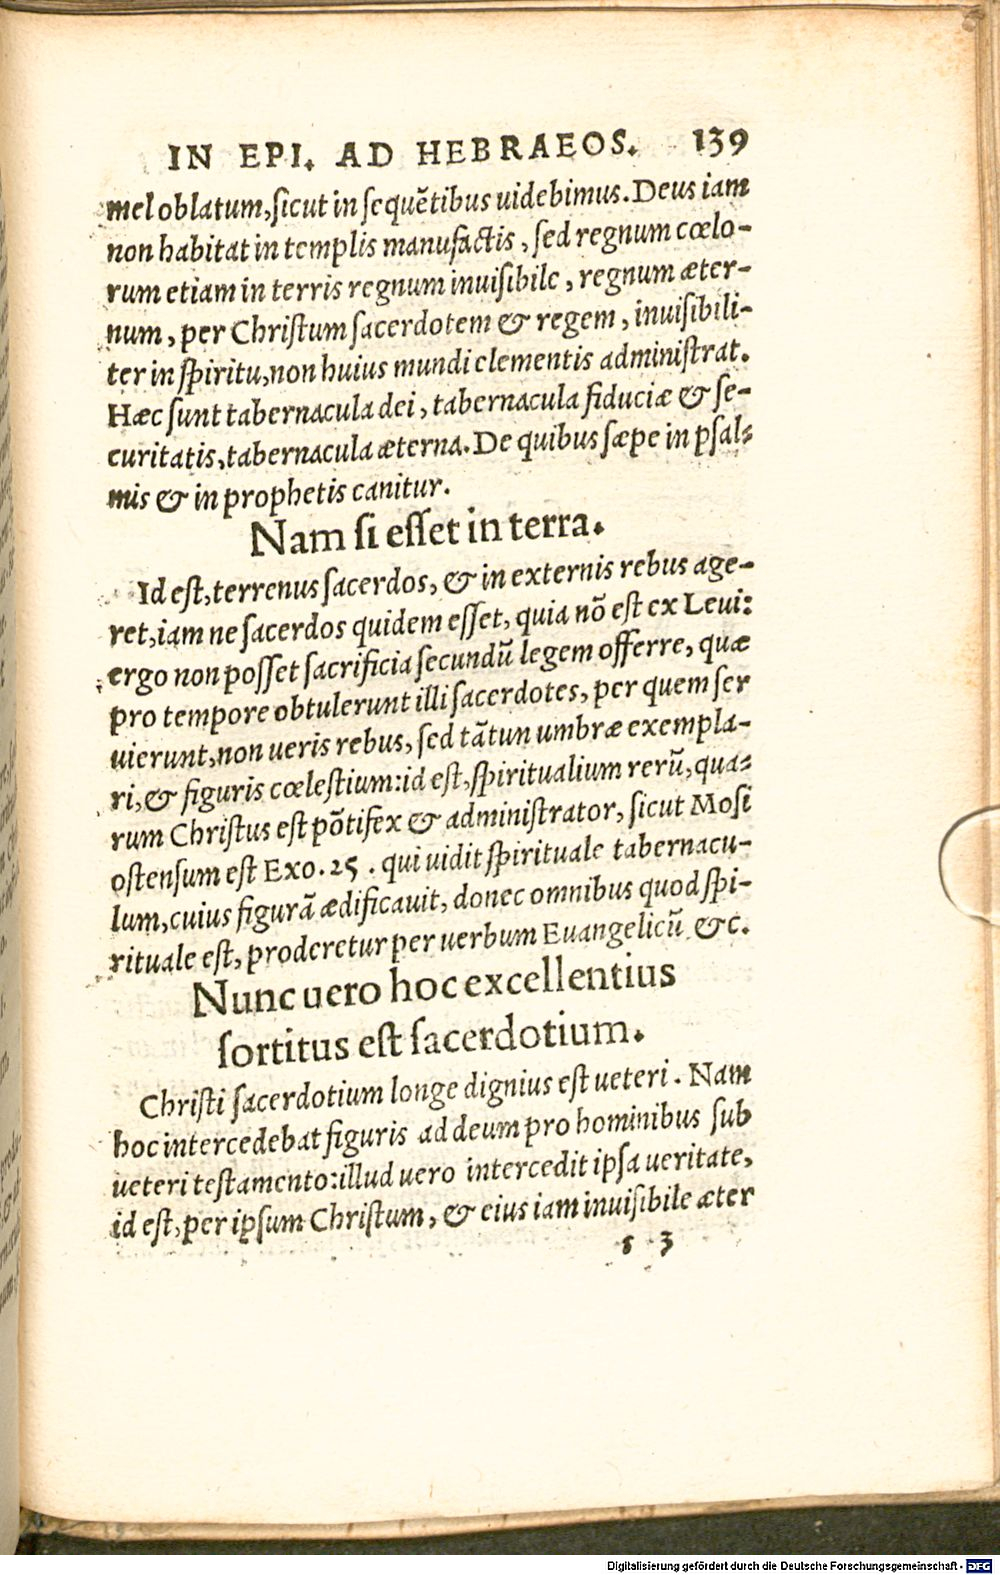 IN EPI. AD HEBRAEOS. 139
mel oblatum, sicut in sequētibus uidebimus. Deus iam
non habitat in templis manufactis, sed regnum cœlo-
rum etiam in terris regnum inuisibile, regnum æter-
num, per Christum sacerdotem & regem, inuisibili-
ter in spiritu, non huius mundi elementis administrat.
Hæc sunt tabernacula dei, tabernacula fiduciæ & se-
curitatis, tabernacula æterna. De quibus sæpe in psal-
mis & in prophetis canitur.
Nam si esset in terra.
Id est, terrenus sacerdos, & in externis rebus age-
ret, iam ne sacerdos quidem esset, quia nō est ex Leui:
ergo non posset sacrificia secundū legem offerre, quæ
pro tempore obtulerunt illi sacerdotes, per quem ser
uierunt, non ueris rebus, sed tātun umbræ exempla-
ri, & figuris cœlestium: id est, spiritualium rerū, qua-
rum Christus est pōtifex & administrator, sicut Mosi
ostensum est Exo. 25. qui uidit spirituale tabernacu-
lum, cuius figurā ædificauit, donec omnibus quod spi-
rituale est, proderetur per uerbum Euangelicū &c.
Nunc uero hoc excellentius
sortitus est sacerdotium.
Christi sacerdotium longe dignius est ueteri. Nam
hoc intercedebat figuris ad deum pro hominibus sub
ueteri testamento: illud uero intercedit ipsa ueritate,
id est, per ipsum Christum, & eius iam inuisibile æter
s 3
Digitalisierung gefördert durch die Deutsche Forschungsgemeinschaft - DFG